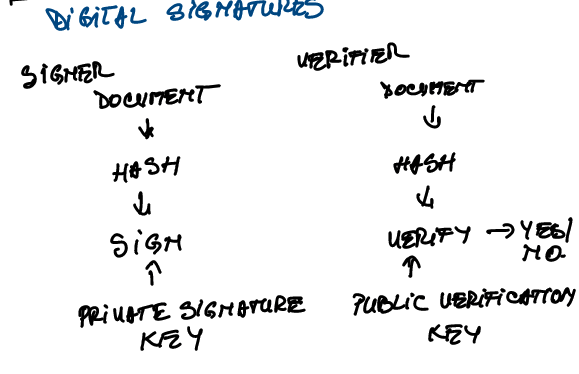 DIGITAL SIGNATURES
SIGNER
DOCUMENT
↓
HASH
↓
SIGN
↑
PRIVATE SIGNATURE
KEY
VERIFIER
DOCUMENT
↓
HASH
↓
VERIFY → YES/
NO
↑
PUBLIC VERIFICATION
KEY